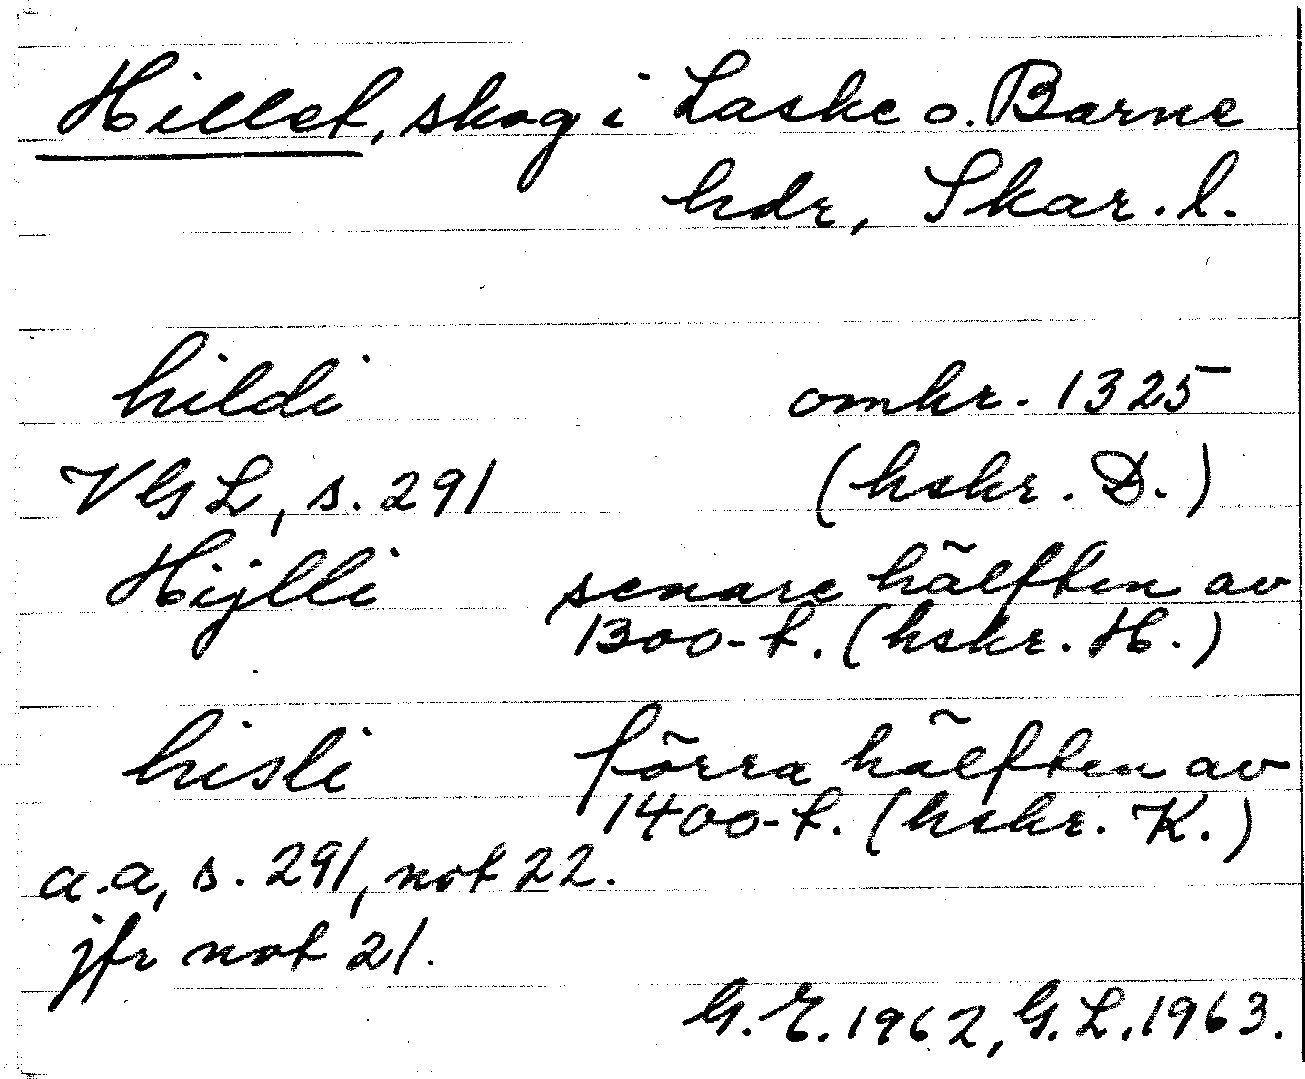 Hillet, skog i Laske o. Barne
hdr, Skar. l.
hildi omkr. 1325
VGL, s. 291 (hskr. D.)
Hijlli senare hälften av
1300-t. (hskr. H.)
hisli förra hälften av
1400-t. (hskr. K.)
a.a, s. 291, not 22.
jfr not 21.
G.E. 1962, G.L. 1963.